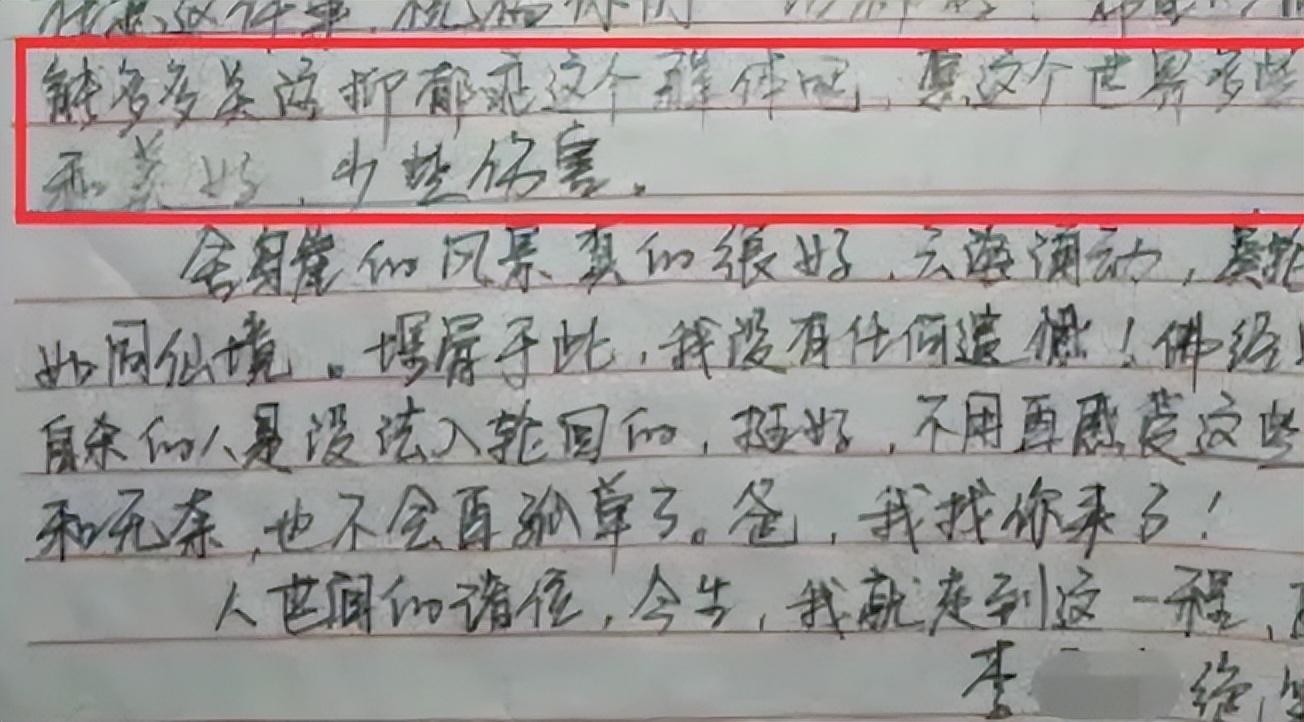 能多多关注抑郁症这个群体吧，愿这个世界多些
和美好，少些伤害。
舍身崖的风景真的很好，云海涌动，
如同仙境。埋骨于此，我没有任何遗憾！佛经
自杀的人是没法入轮回的，挺好，不用再感受这些
和无奈，也不会再孤单了。爸，我找你来了！
人世间的诸位，今生，我就走到这一程，
李 绝笔